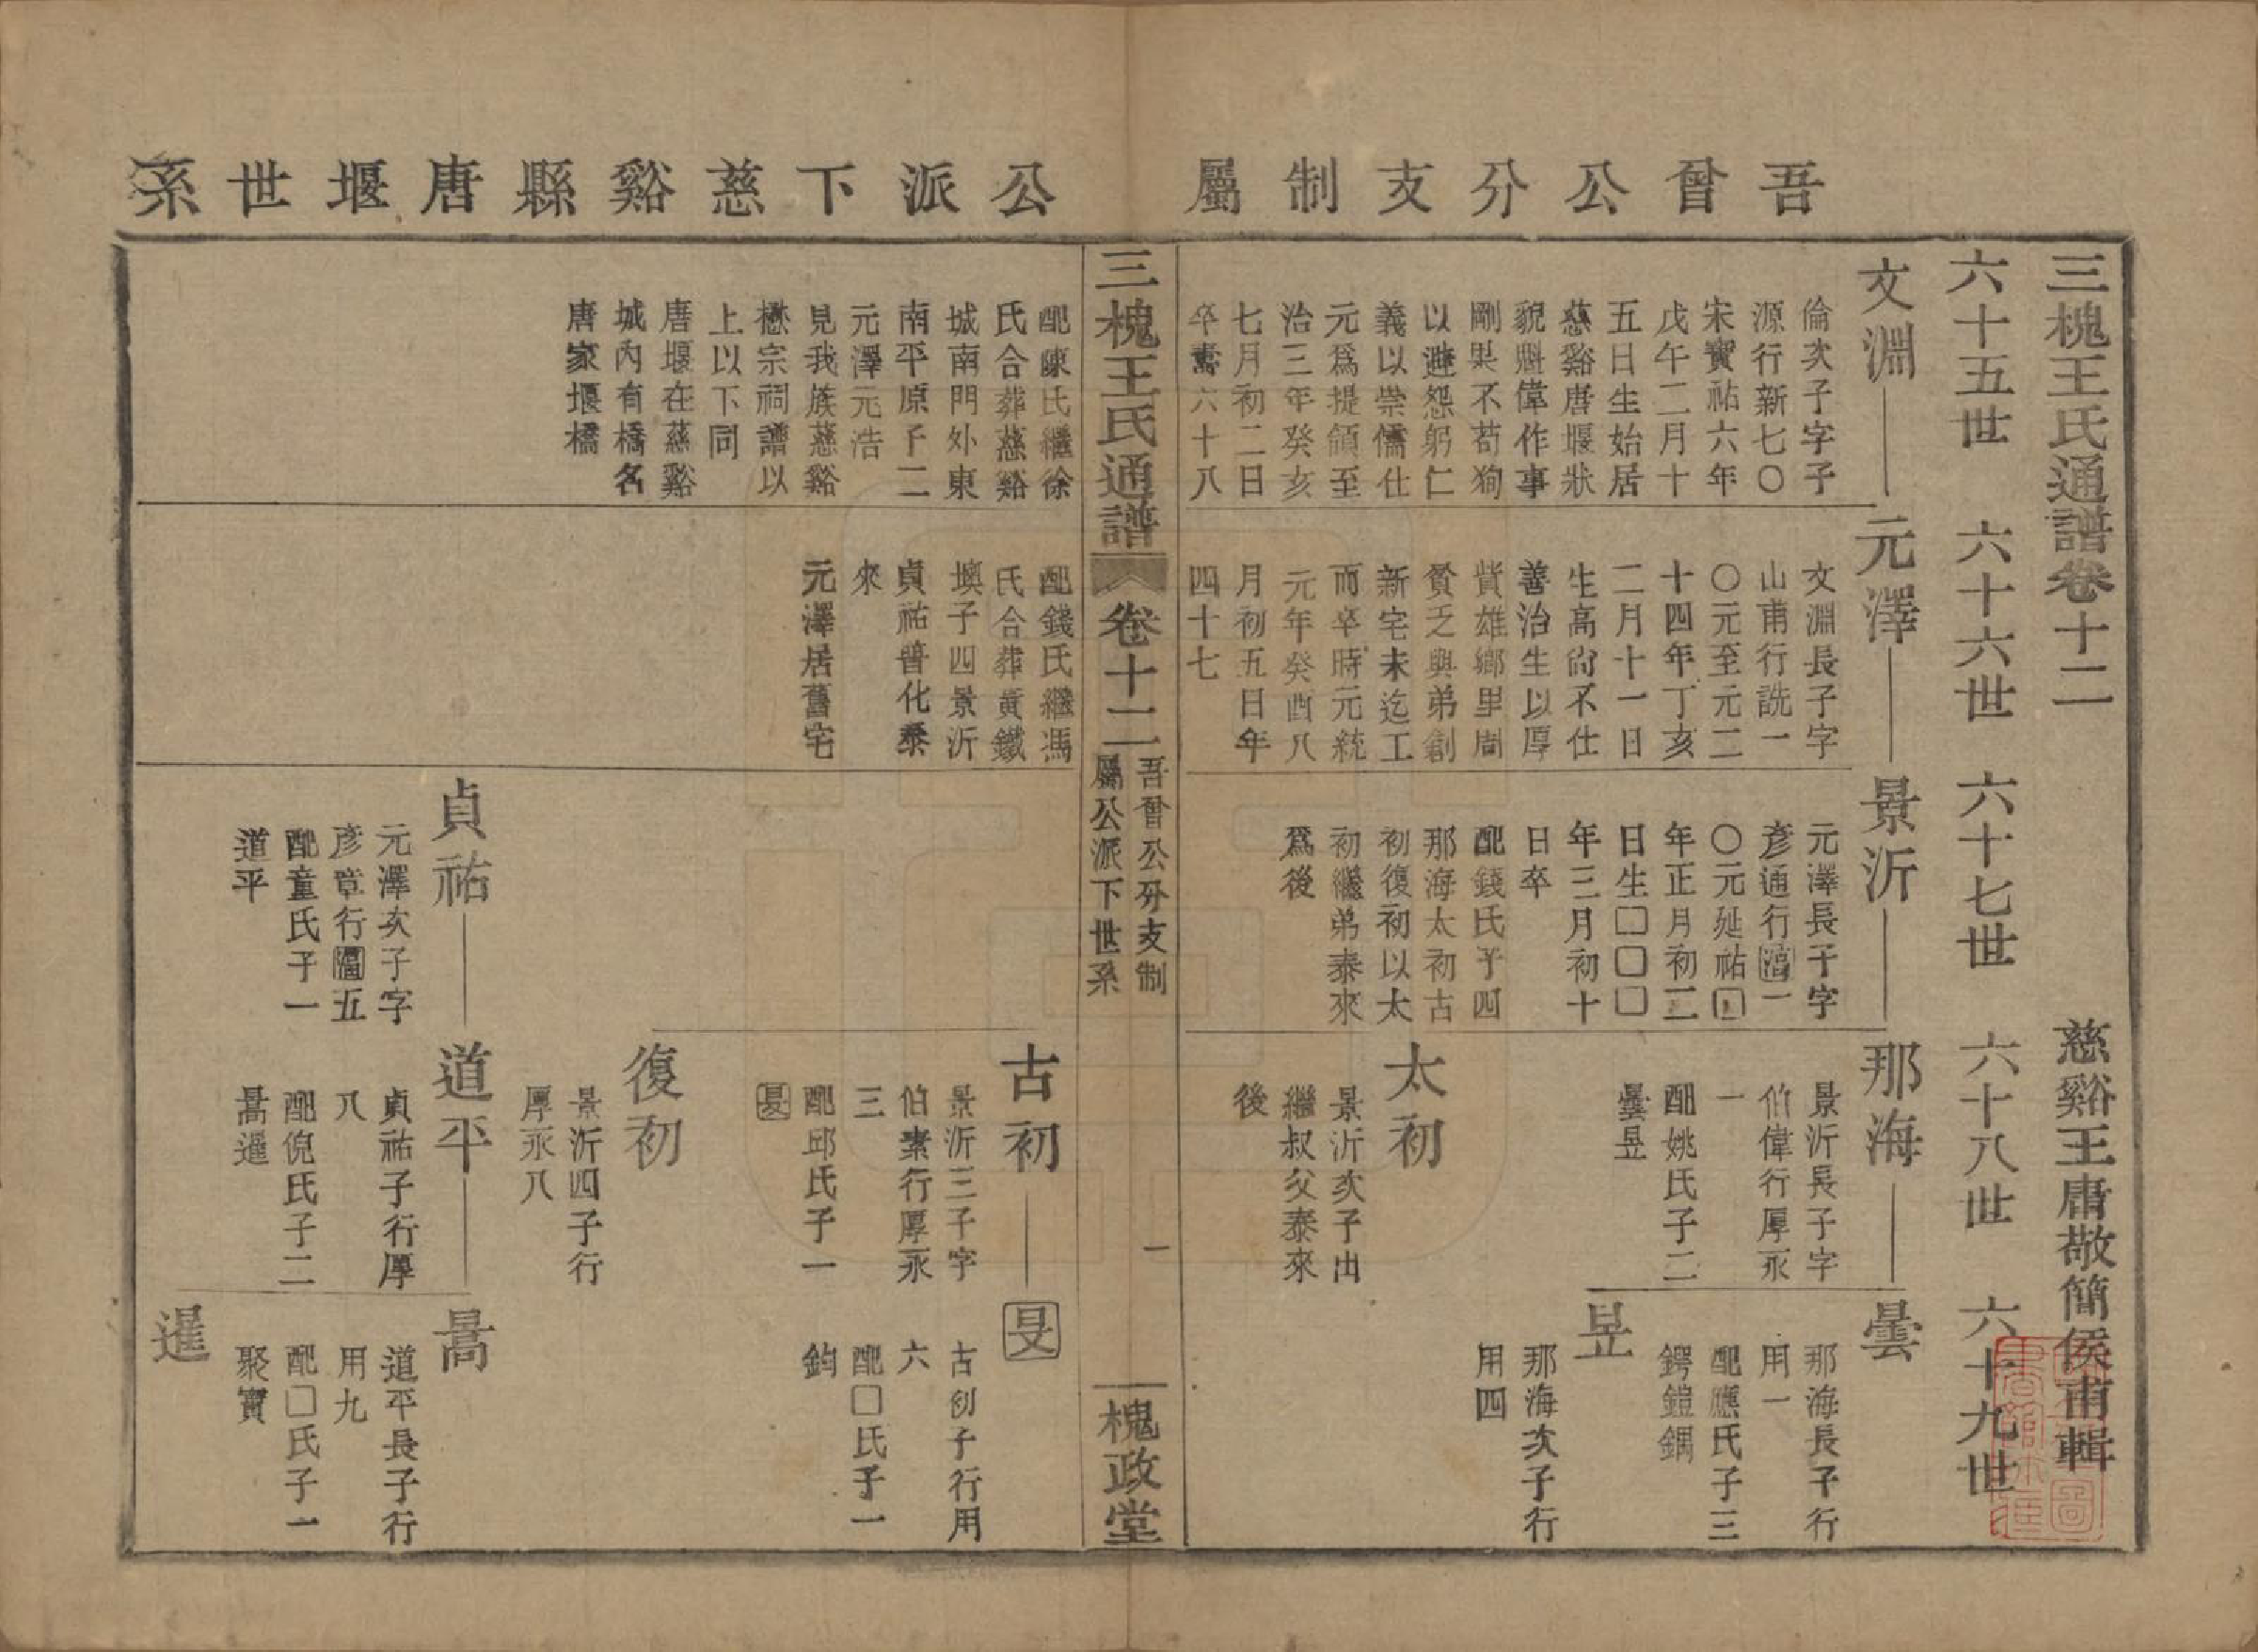 吾曾公分支制屬公派下慈谿縣唐堰世系
三槐王氏通譜卷十二
慈谿王庸敬簡侯甫輯
六十五世
六十六世
六十七世
六十八世
六十九世
文淵
倫次子字子
源行新七〇
宋寶祐六年
戊午二月十
五日生始居
慈谿唐堰狀
貌魁偉作事
剛果不苟狥
以遊怨躬仁
義以崇儒仕
元爲提領至
治三年癸亥
七月初二日
卒壽六十八
配陳氏繼徐
氏合葬慈谿
城南門外東
南平原子二
元澤元浩
見我族慈谿
懋宗祠譜以
上以下同
唐堰在慈谿
城內有橋名
唐家堰橋
元澤
文淵長子字
山甫行詵一
〇元至元二
十四年丁亥
二月十一日
生高尙不仕
善治生以厚
貲雄鄉里周
貧乏與弟創
新宅未迄工
而卒時元統
元年癸酉八
月初五日年
四十七
配錢氏繼馮
氏合葬黃鐵
墺子四景沂
貞祐普化泰
來
元澤居舊宅
景沂
元澤長子字
彥通行㵧一
〇元延祐□
年正月初二
日生□□□
年三月初十
日卒
配錢氏子四
那海太初古
初復初以太
初繼弟泰來
爲後
那海
景沂長子字
伯偉行厚永
一
配姚氏子二
曇昱
曇
那海長子行
用一
配應氏子三
鍔鎧鍝
昱
那海次子行
用四
太初
景沂次子出
繼叔父泰來
後
三槐王氏通譜
卷十二
吾曾公分支制
屬公派下世系
一
槐政堂
古初
景沂三子字
伯素行厚永
三
配邱氏子一
旻
旻
古初子行用
六
配□氏子一
鈞
復初
景沂四子行
厚永八
貞祐
元澤次子字
彥章行五
配童氏子一
道平
道平
貞祐子行厚
八
配倪氏子二
暠暹
暠
道平長子行
用九
配□氏子一
聚寶
暹